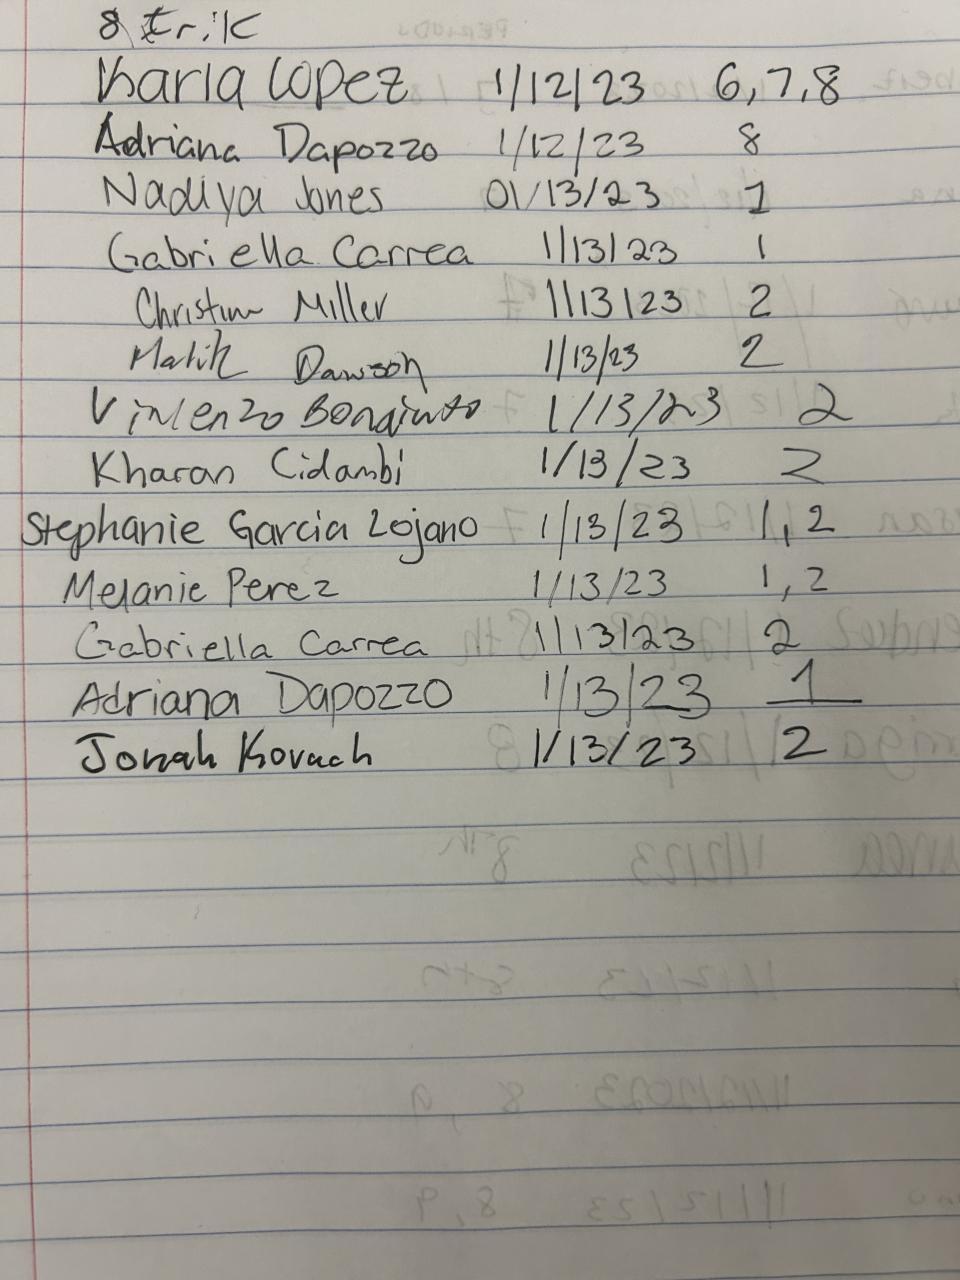 8 Erik
Karla Lopez 1/12/23 6,7,8
Adriana Dapozzo 1/12/23 8
Nadiya Jones 01/13/23 1
Gabriella Carrea 1/13/23 1
Christine Miller 1/13/23 2
Malik Dawson 1/13/23 2
Vincenzo 1/13/23 2
Kharan Cidambi 1/13/23 2
Stephanie Garcia Lojano 1/13/23 1,2
Melanie Perez 1/13/23 1,2
Gabriella Carrea 1/13/23 2
Adriana Dapozzo 1/13/23 1
Jonah Kovach 1/13/23 2